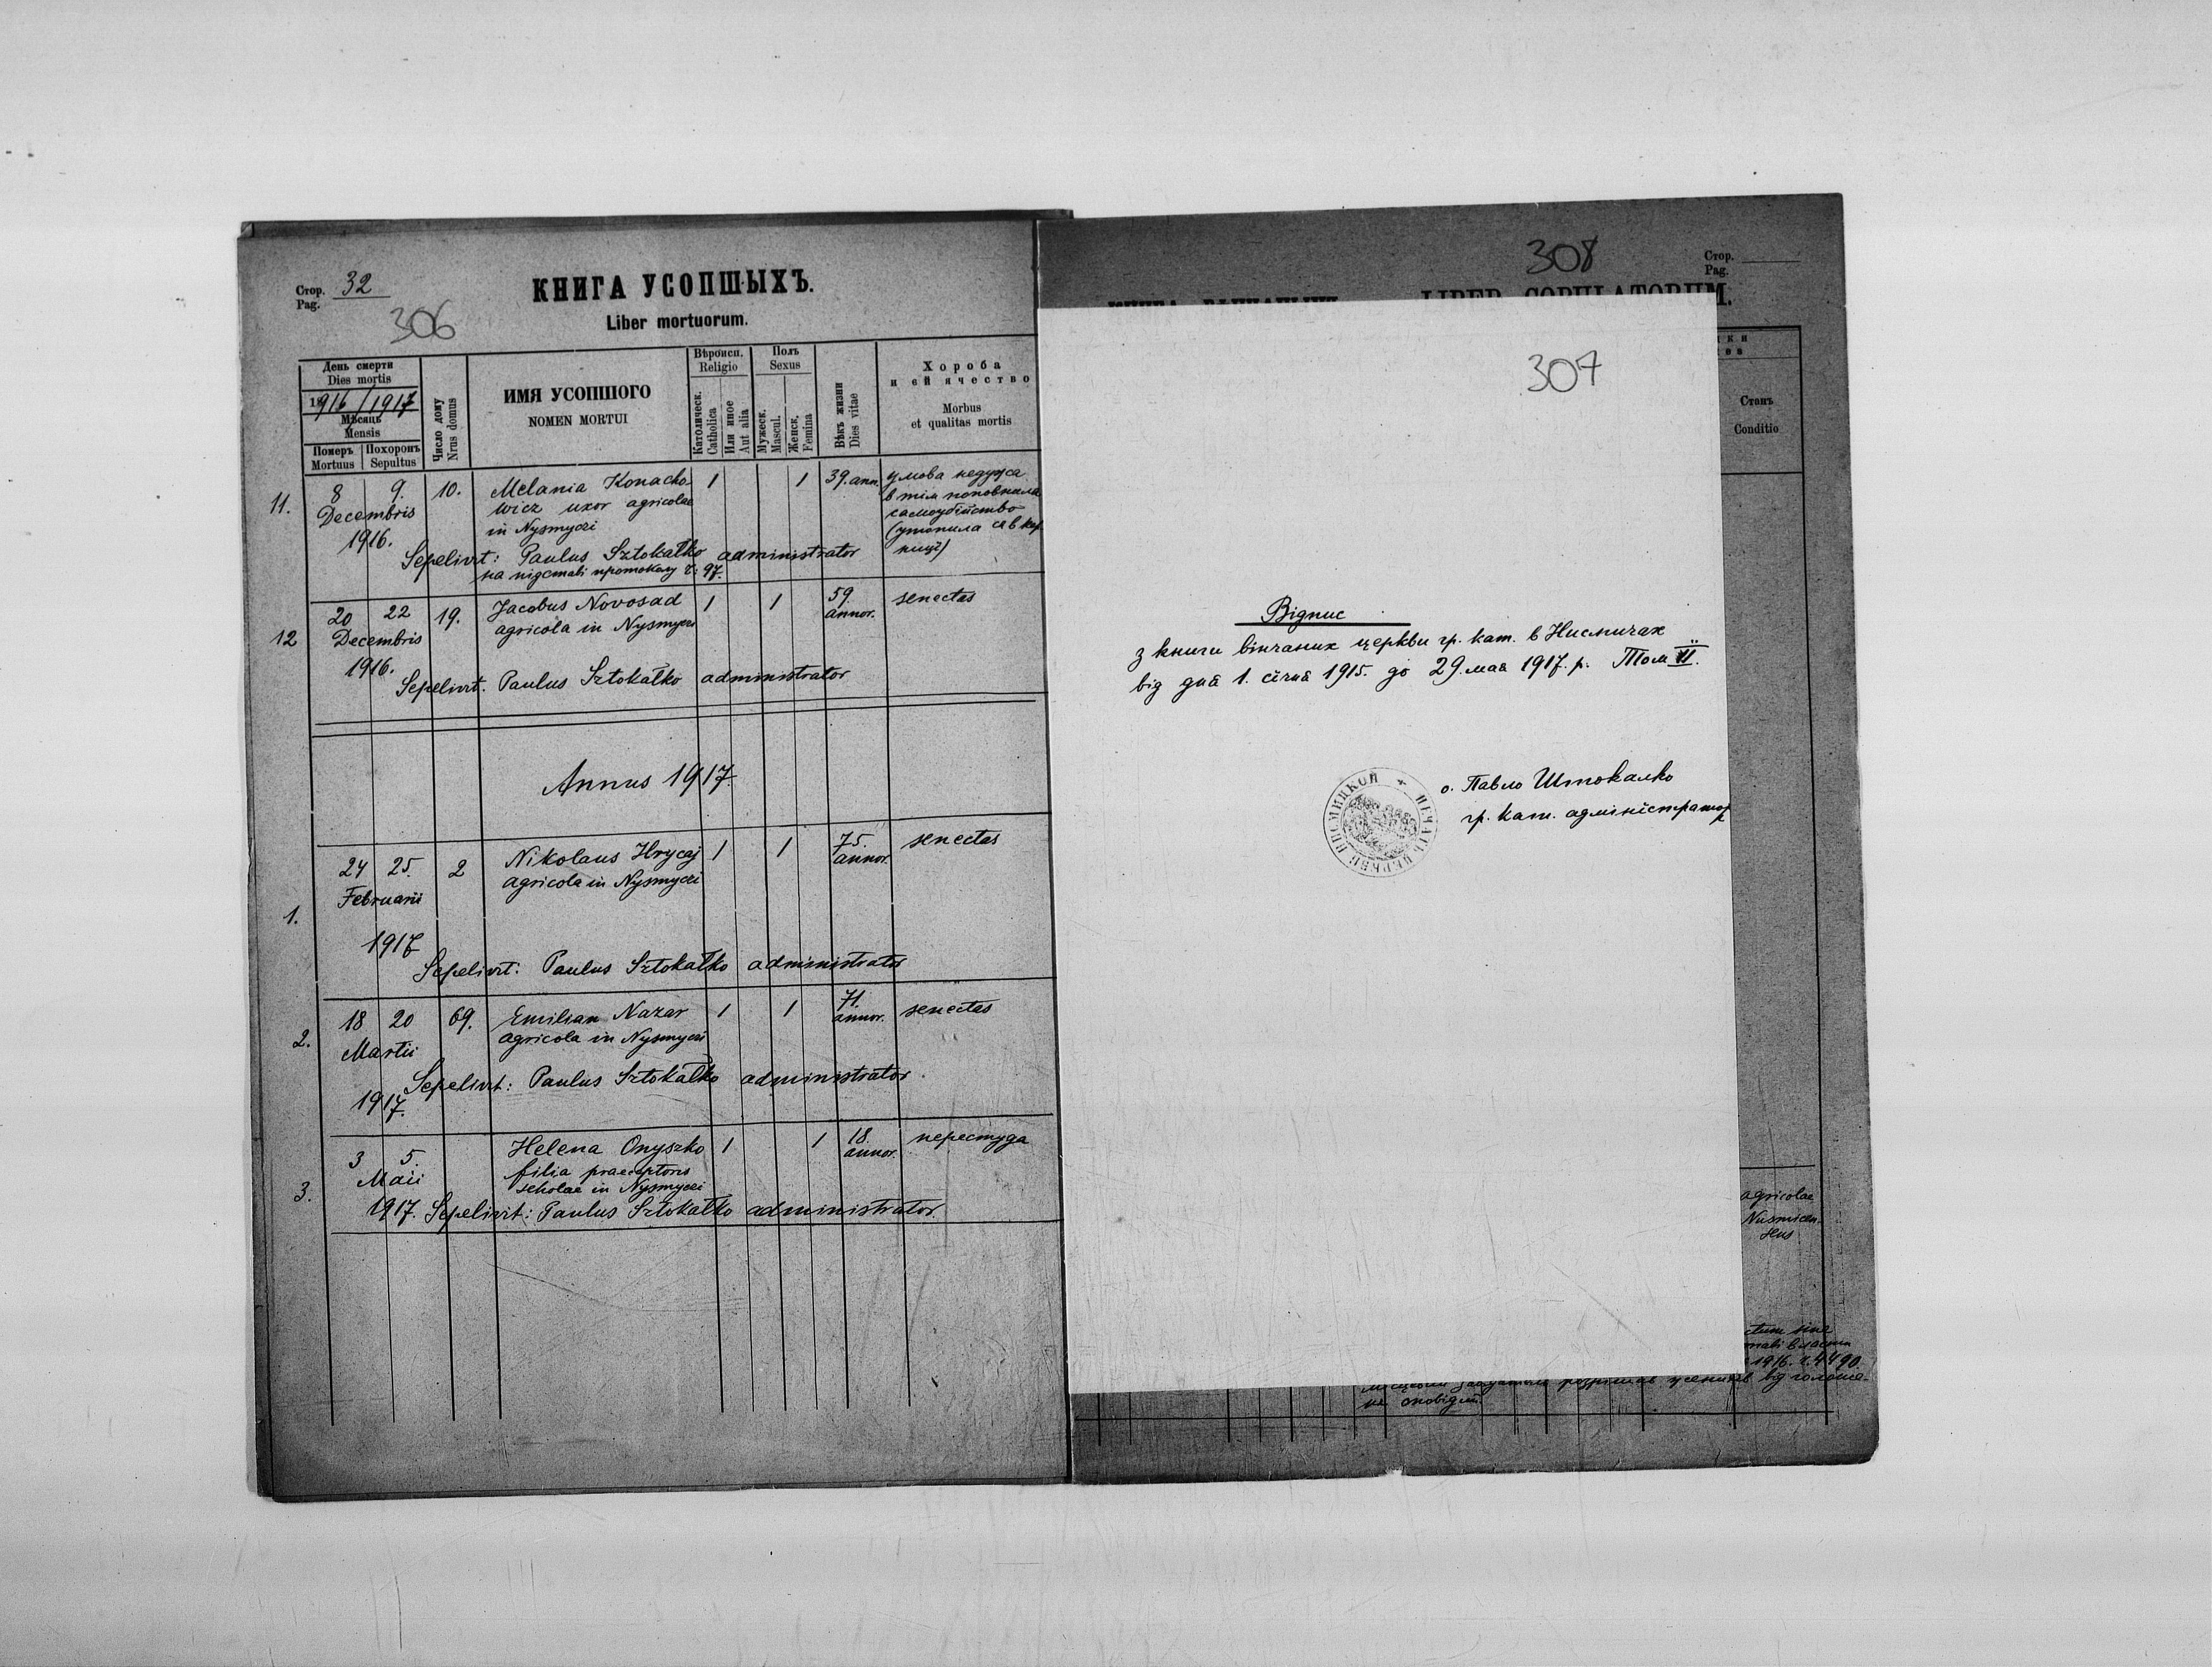 Стор. 32
Pag.
306
КНИГА УСОПШЫХЪ.
Liber mortuorum.
День смерти
Dies mortis
1916/1917
Мѣсяць
Mensis
Померъ Mortuus
Похоронъ Sepultus
Число дому
Nrus domus
ИМЯ УСОПШОГО
NOMEN MORTUI
Вѣроисп.
Religio
Католическ.
Catholica
Или иное
Aut alia
Полъ
Sexus
Мужеск.
Mascul.
Женск.
Femina
Вѣкъ жизни
Dies vitae
Хороба
и ей ячество
Morbus
et qualitas mortis
11. 8 9. 10. Melania Konacho- 1 1 39. ann. умова недужа
Decembris wicz uxor agricolae в тім поповнила
1916. in Nysmyczi самоубійство
(утопила ся в кер
ниці)
Sepelivit: Paulus Sztokałko administrator
на підставі протоколу ч: 97.
12 20 22 19. Jacobus Novosad 1 1 59. annor. senectas
Decembris agricola in Nysmyczi
1916.
Sepelivit. Paulus Sztokałko administrator
Annus 1917.
1. 24 25. 2 Nikolaus Hrycaj 1 1 75. annor. senectas
Februarii agricola in Nysmyczi
1917
Sepelivit: Paulus Sztokałko administrator
2. 18 20 69. Emilian Nazar 1 1 71. annor. senectas
Martii agricola in Nysmyczi
Sepelivit: Paulus Sztokałko administrator.
1917.
3. 3 5. Helena Onyszko 1 1 18. annor. перестуда
Maii filia praeceptoris
scholae in Nysmyczi
1917. Sepelivit: Paulus Sztokałko administrator.
308
Стор.
Pag.
LIBER COPULATORUM.
307
Відпис
з книги вінчаних церкви гр. кат. в Нисмичах
від дня 1. січня 1915. до 29. мая 1917. р. Том VI.
о. Павло Штокалко
гр. кат. адміністратор
ПЕЧАТЬ ЦЕРКВИ НИСМИЦКОЙ
Станъ
Conditio
agricolae
Nusmicen
1916. ч. 4490.
від голоше-
не оповідий.